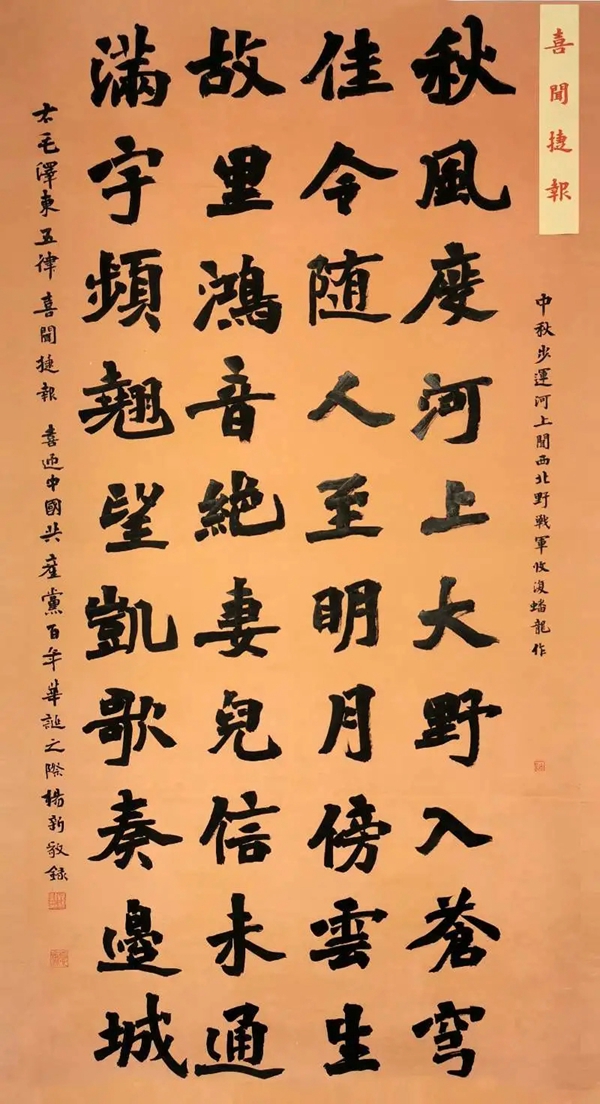 喜聞捷報
中秋步運河上聞西北野戰軍收復蟠龍作
秋風度河上大野入蒼穹
佳令随人至明月傍雲生
故里鴻音絶妻兒信未通
滿宇頻翹望凱歌奏邊城
右毛澤東五律 喜聞捷報 喜迎中國共産黨百年華誕之際楊新敬録